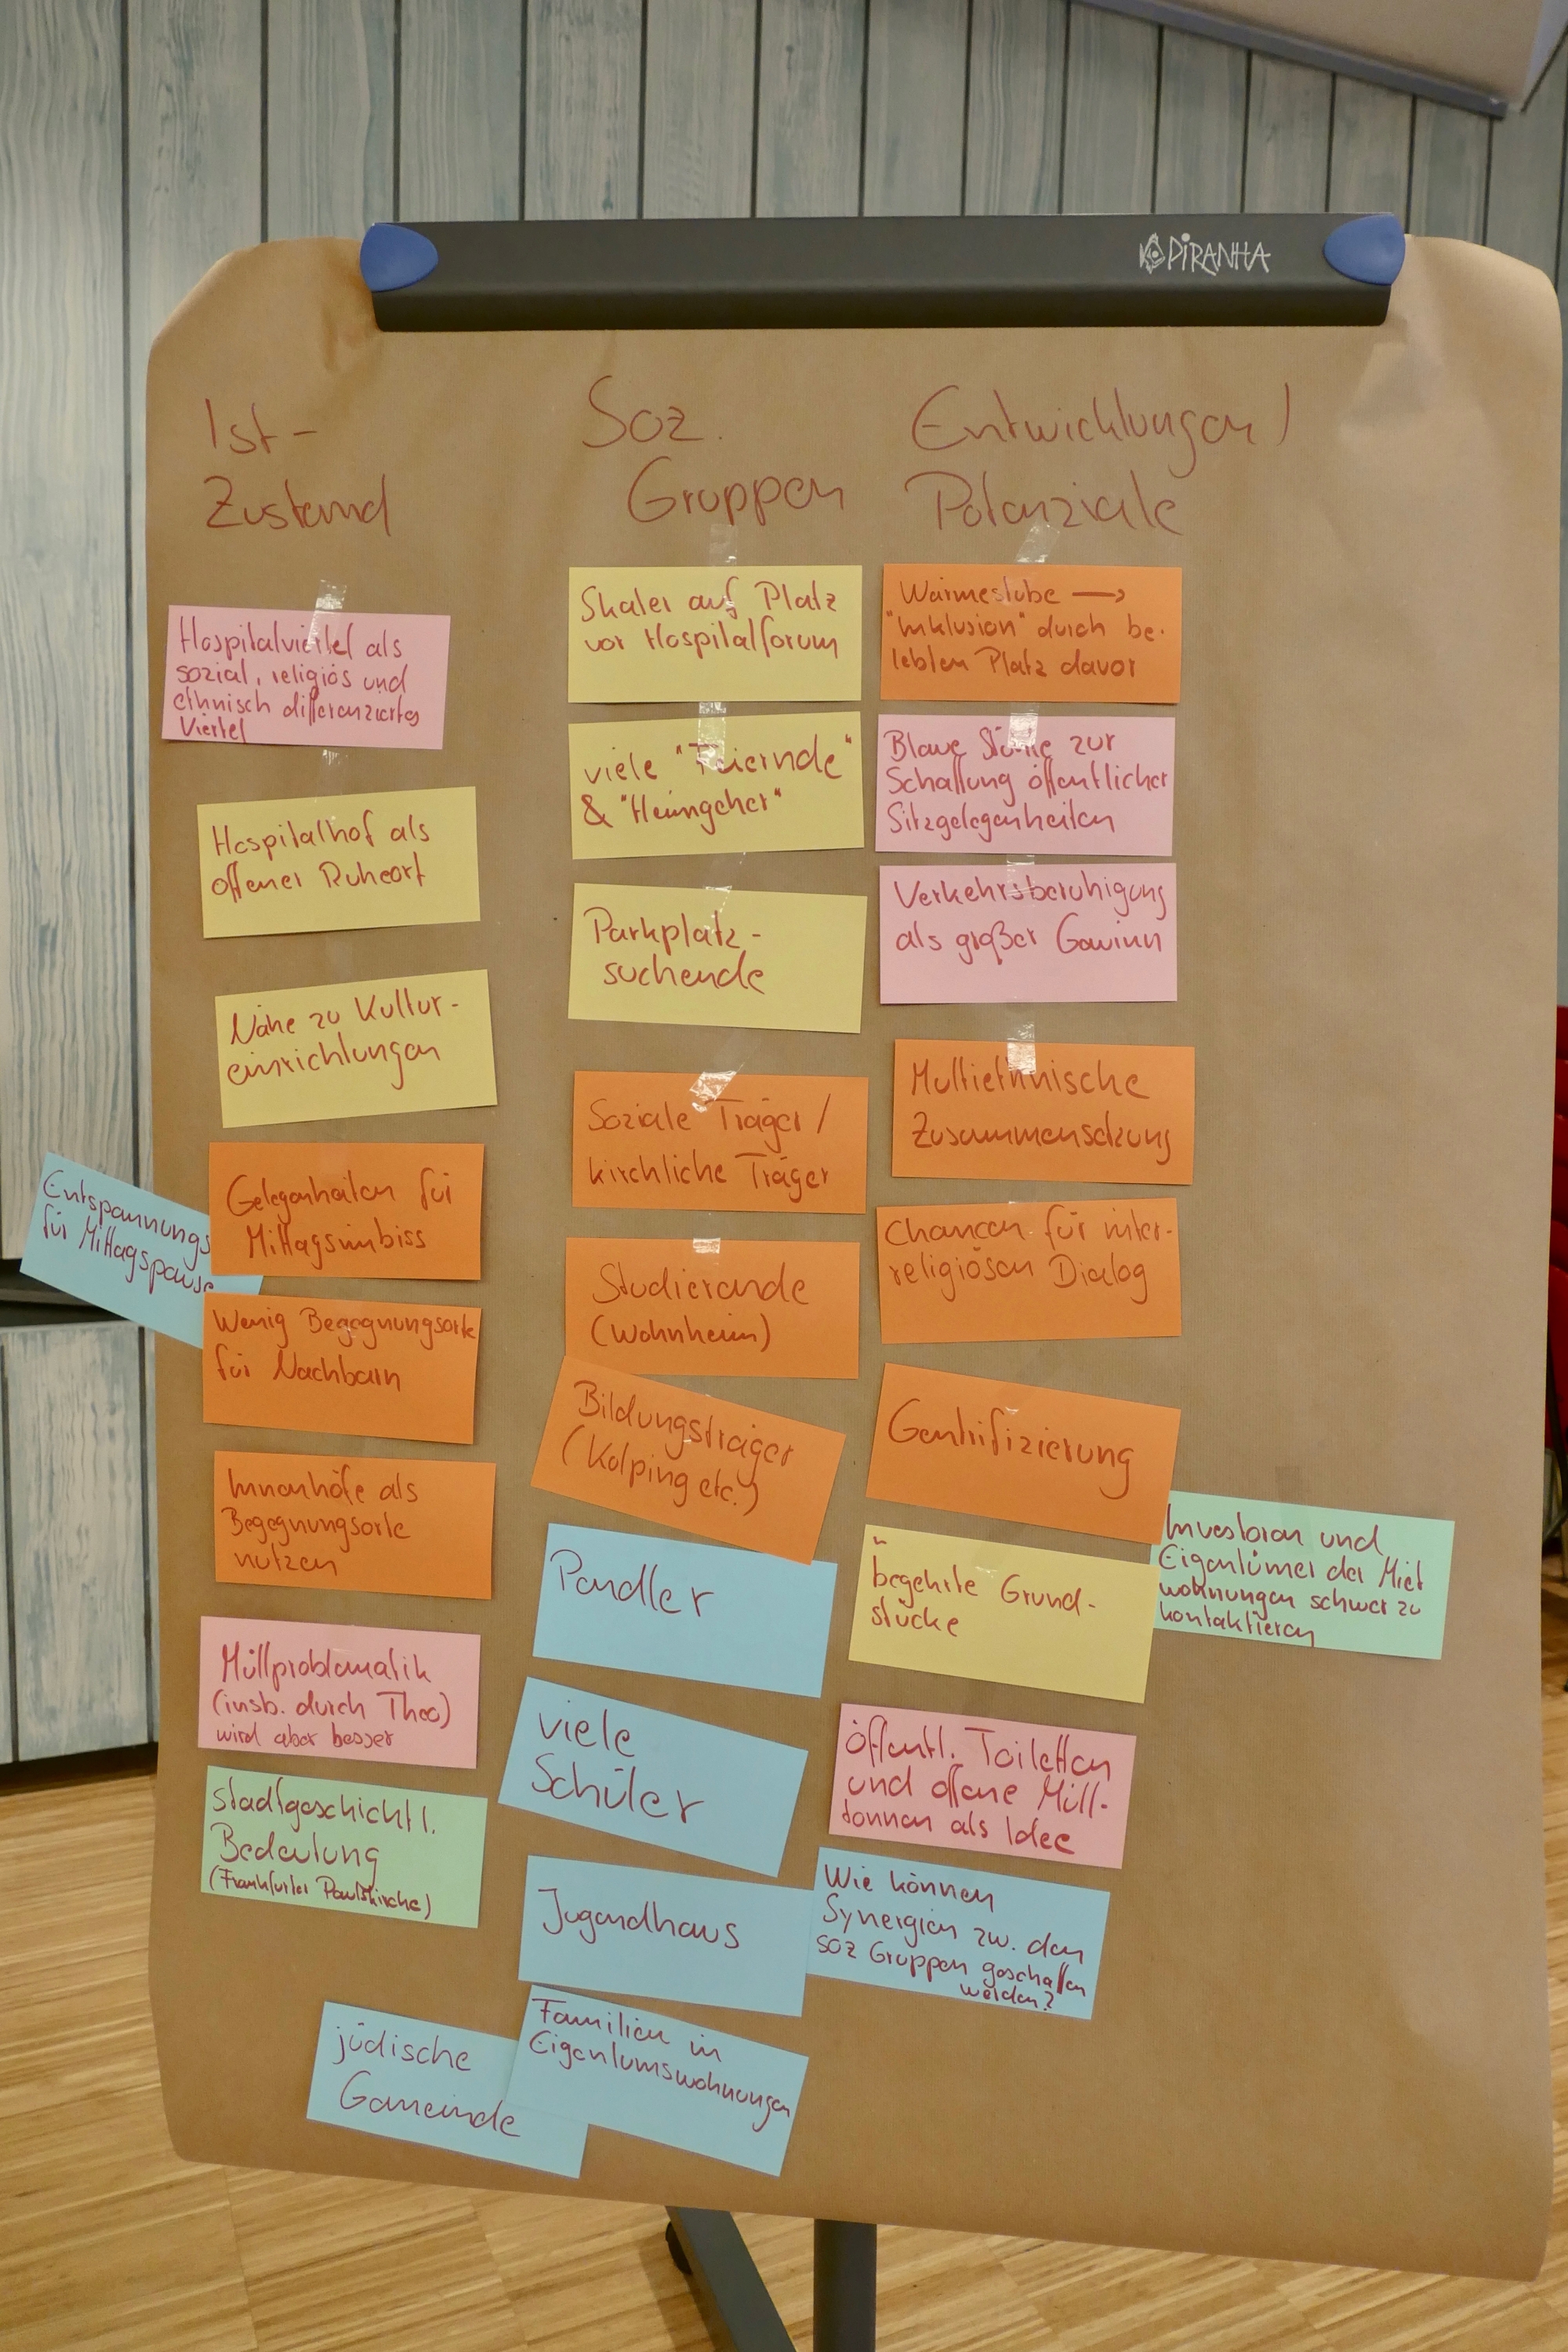 PiRANHA
Ist-
Zustand
Hospitalviertel als
sozial, religiös und
ethnisch differenziertes
Viertel
Hospitalhof als
offener Ruheort
Nähe zu Kultur-
einrichtungen
Entspannungs
für Mittagspause
Gelegenheiten für
Mittagsimbiss
Wenig Begegnungsorte
für Nachbarn
Innenhöfe als
Begegnungsorte
nutzen
Müllproblematik
(insb. durch Theo)
wird aber besser
stadtgeschichtl.
Bedeutung
(Frankfurter Paulskirche)
jüdische
Gemeinde
Soz.
Gruppen
Skater auf Platz
vor Hospitalforum
viele "Feiernde"
& "Heimgeher"
Parkplatz-
suchende
Soziale Träger /
kirchliche Träger
Studierende
(Wohnheim)
Bildungsträger
(Kolping etc.)
Pendler
viele
Schüler
Jugendhaus
Familien in
Eigentumswohnungen
Entwicklungen /
Potenziale
Wärmestube →
"Inklusion" durch be-
lebten Platz davor
Blaue Stühle zur
Schaffung öffentlicher
Sitzgelegenheiten
Verkehrsberuhigung
als großer Gewinn
Multiethnische
Zusammensetzung
Chancen für inter-
religiösen Dialog
Gentrifizierung
begehrte Grund-
stücke
Investoren und
Eigentümer der Miet
wohnungen schwer zu
kontaktieren
öffentl. Toiletten
und offene Müll-
tonnen als Idee
Wie können
Synergien zw. den
soz Gruppen geschaffen
werden?